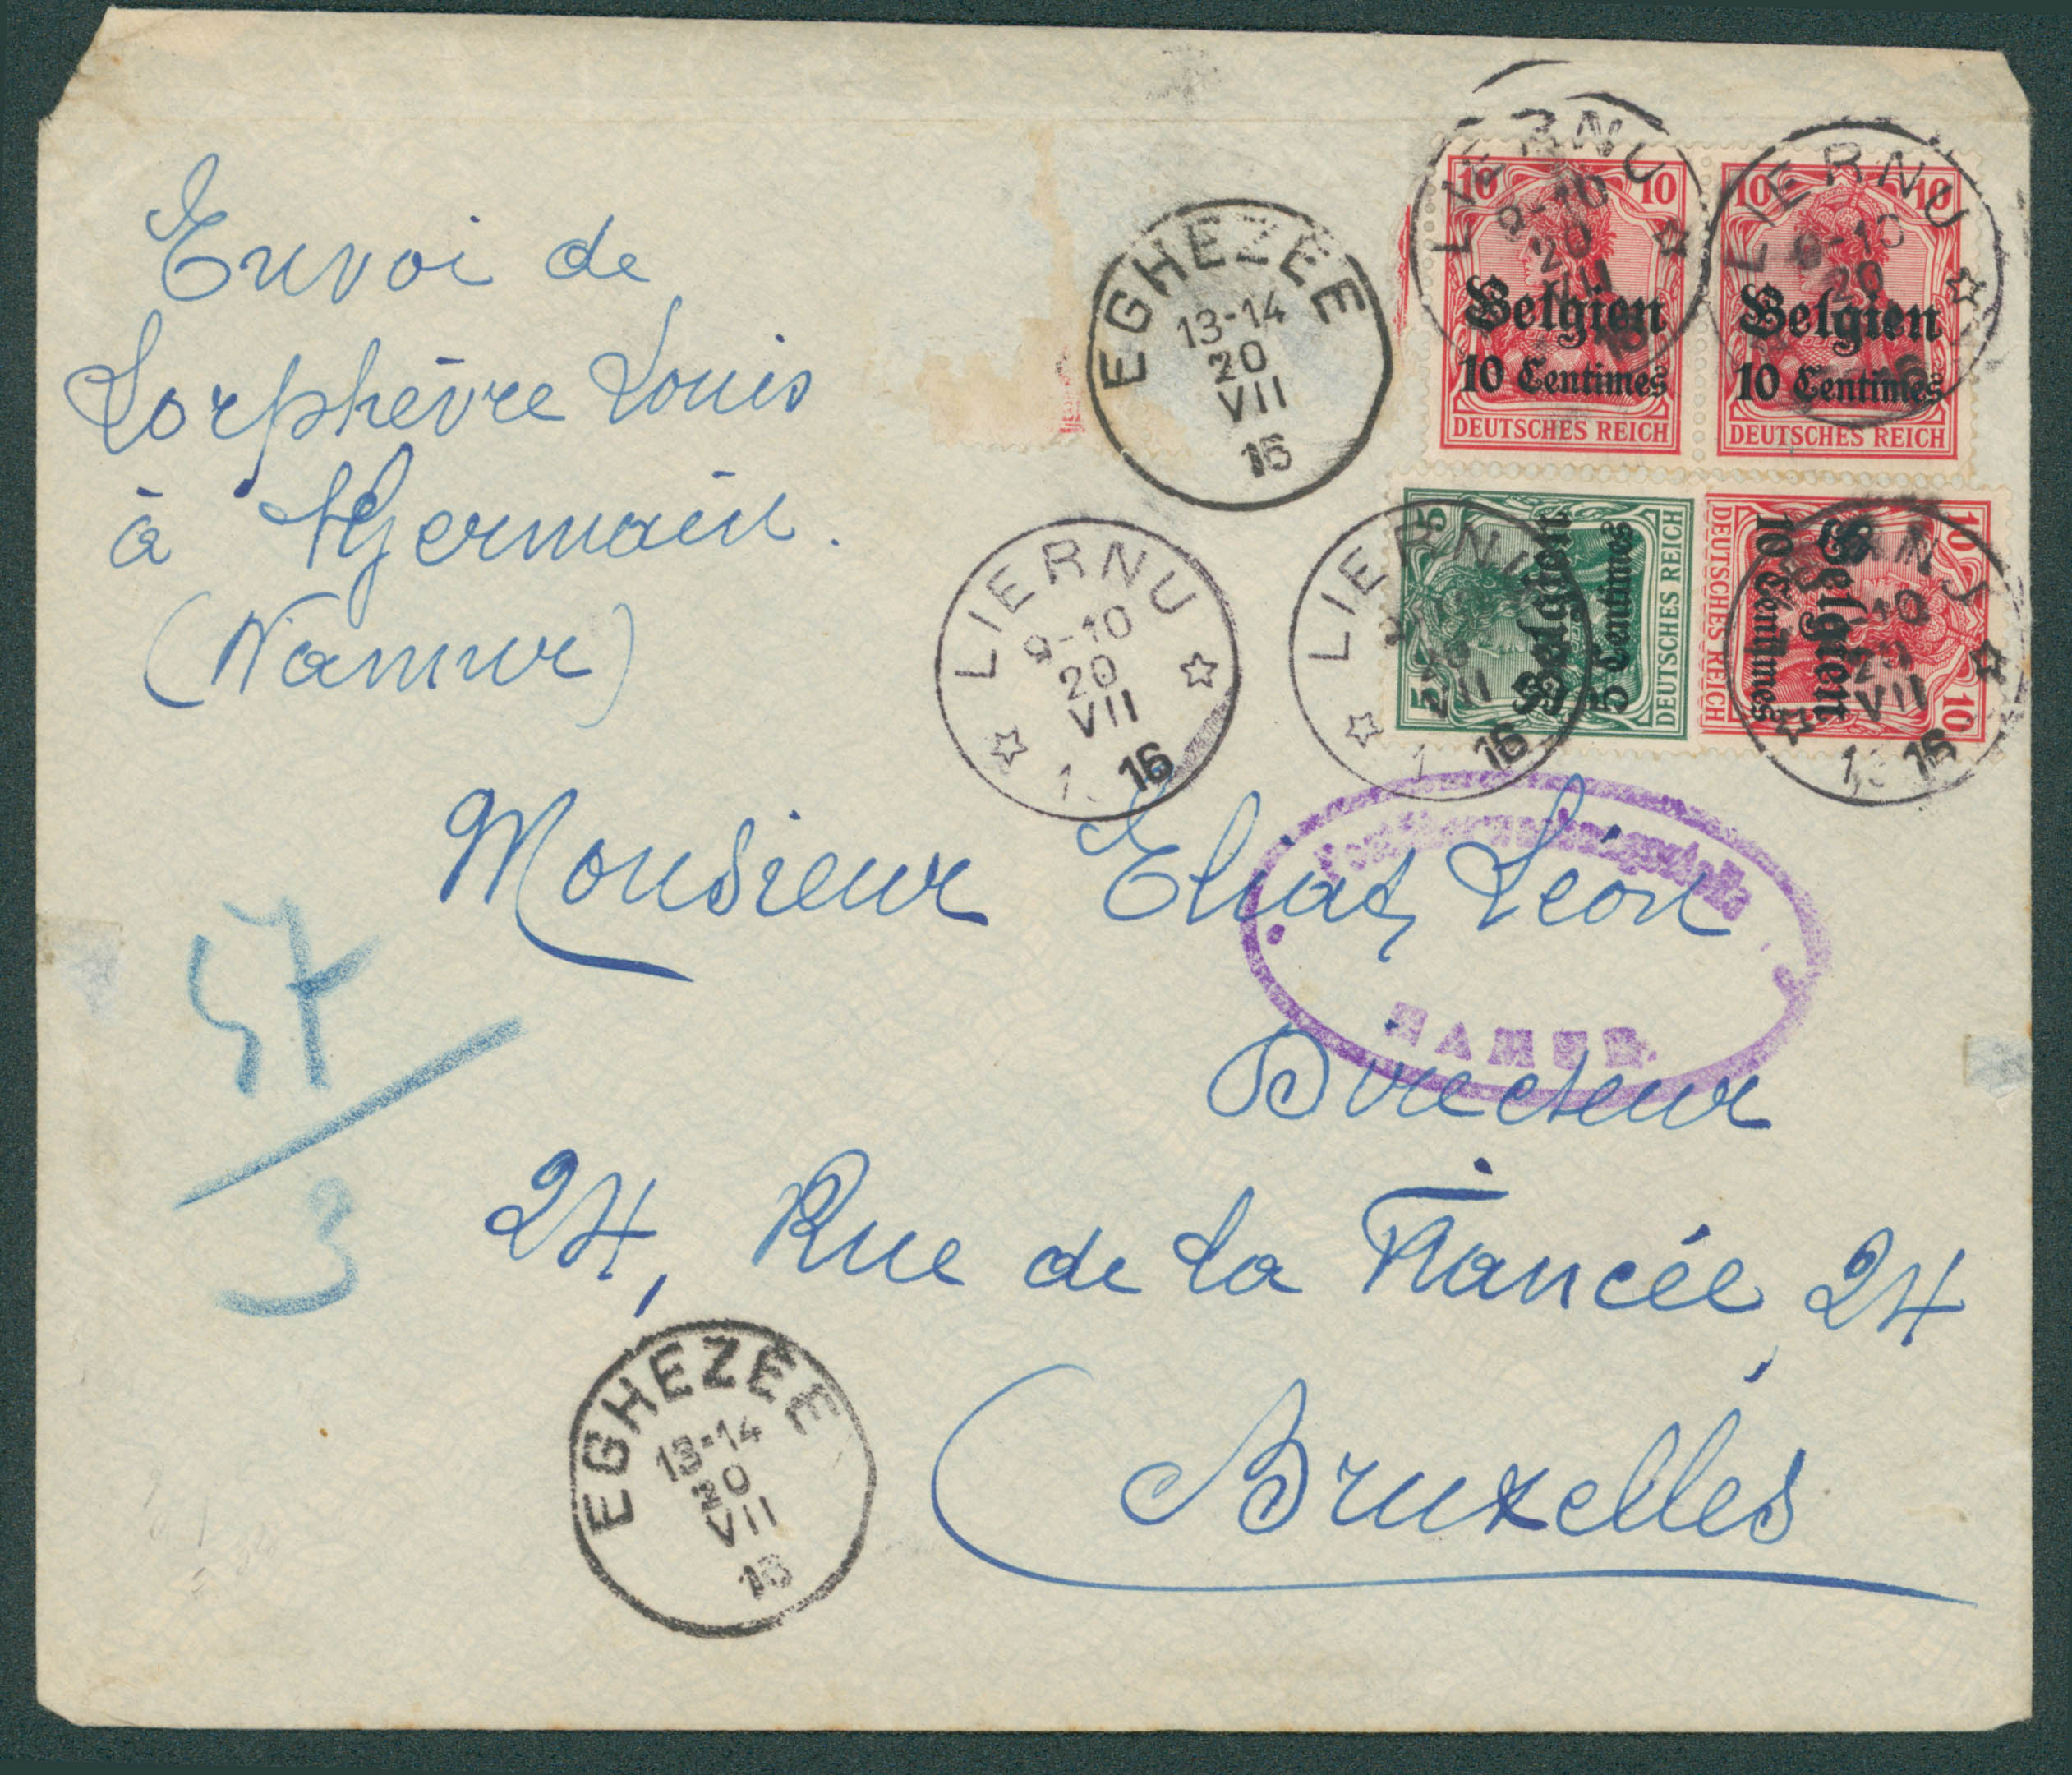 Envoi de
Lorphèvre Louis
à St Germain.
(Namur)
EGHEZÉE
13-14
20
VII
16
LIERNU
9-10
20
VII
16
LIERNU
9-10
20
VII
16
10 10
Belgien
10 Centimes
DEUTSCHES REICH
LIERNU
9-10
20
10 10
Belgien
10 Centimes
DEUTSCHES REICH
LIERNU
VII
16
5 5
Belgien
5 Centimes
DEUTSCHES REICH
LIERNU
10
20
VII
16
10 10
Belgien
10 Centimes
DEUTSCHES REICH
Monsieur Eliat Léon
NAMUR.
Directeur
24, Rue de la Fiancée, 24
Bruxelles
57
3
EGHEZÉE
13-14
20
VII
16